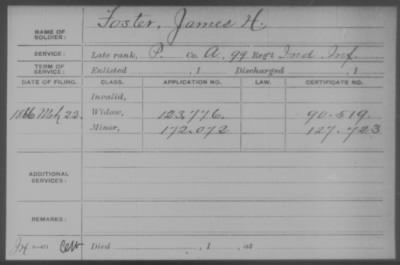 NAME OF SOLDIER: Foster, James H.
SERVICE: Late rank, P. Co. A, 99 Reg't Ind. Inf.
TERM OF SERVICE: Enlisted , 1 Discharged , 1
DATE OF FILING. CLASS. APPLICATION NO. LAW. CERTIFICATE NO.
Invalid,
1866 Mch 22. Widow, 123.776. 90.519.
Minor, 172.072 127.723
ADDITIONAL SERVICES:
REMARKS:
Died , 1 , at